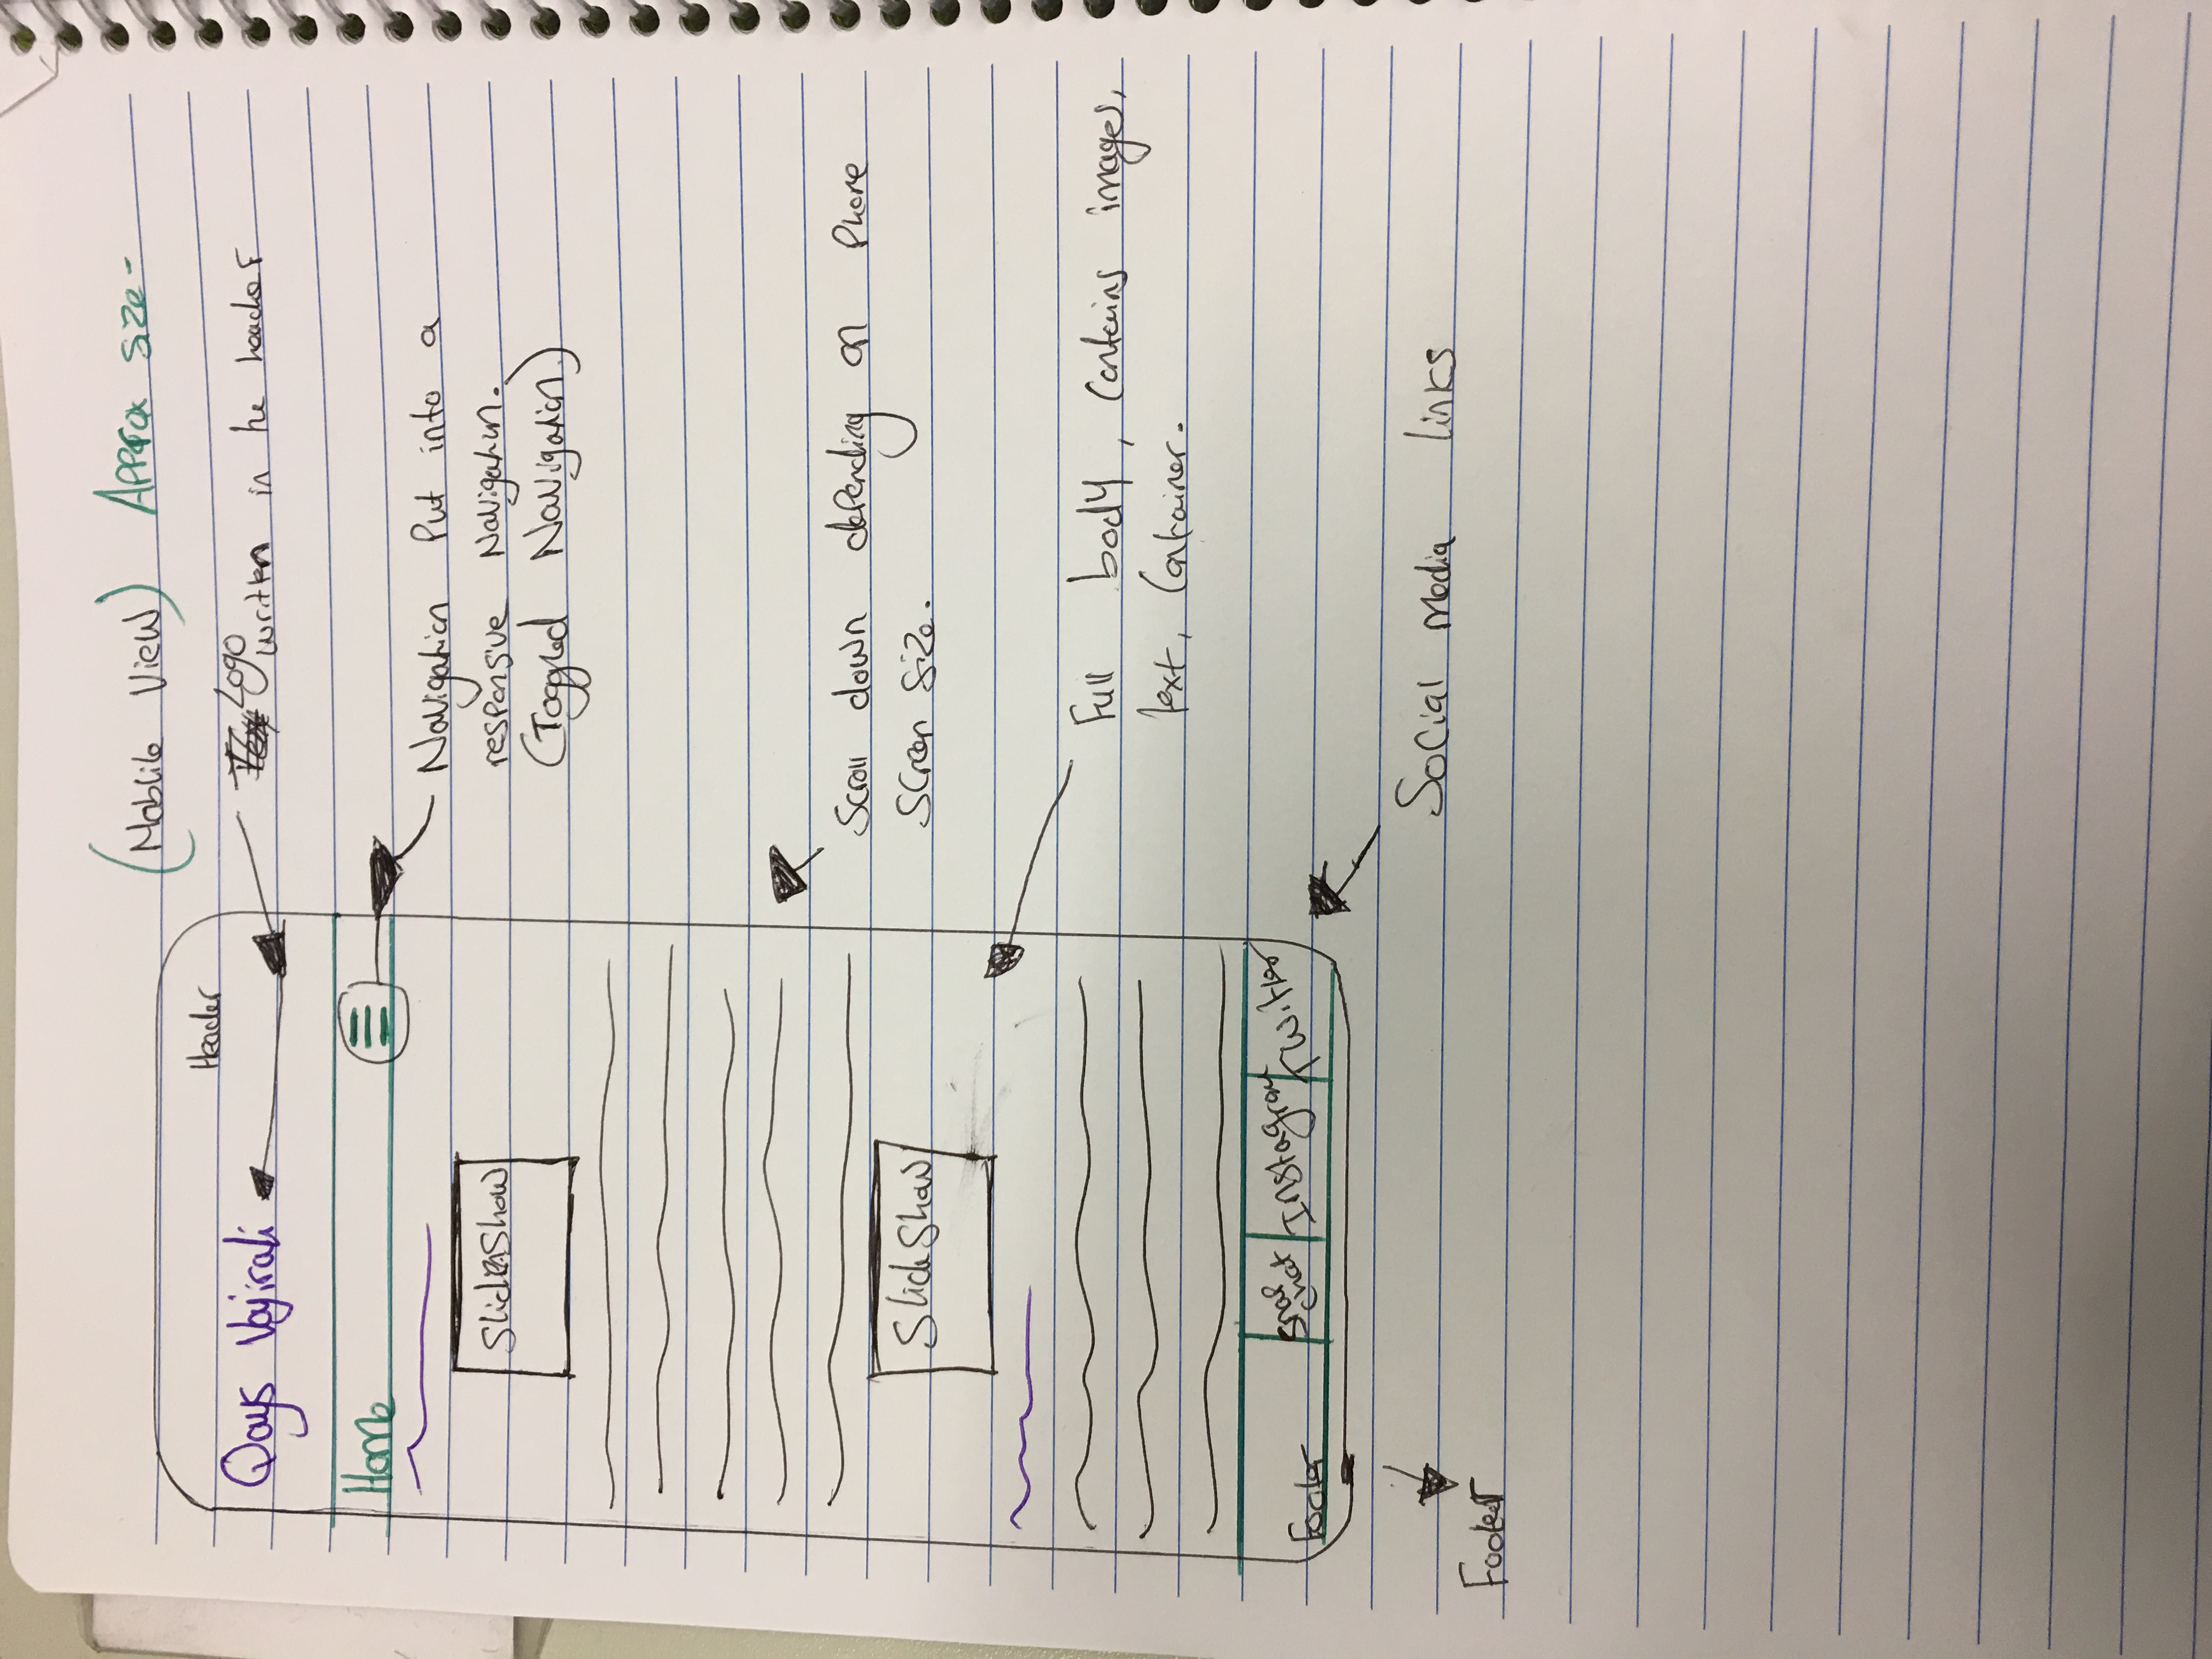 (Mobile View) Approx size-
Header
Qays Vajirali
Logo
written in he header
Home
Navigation Put into a
responsive Navigation.
(Toggled Navigation)
SlideShow
Scroll down depending on Phone
Screen Size.
SlideShow
Full body, Contains images,
text, Container.
Footer
Snap
chat
Instagram
Twitter
Social media links
Footer